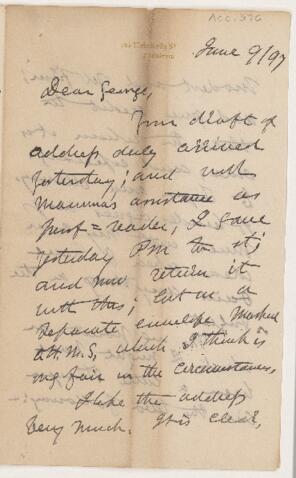 ACC. 576
University St
June 9/97
Dear George,
Your draft of
address duly arrived
yesterday; and with
Mamma's assistance as
proof=reader, I gave
yesterday PM to it;
and now return it
with this; but in a
separate envelope marked
O.H.M.S, which I think is
fair in the circumstances,
I like the address
very much. It is clear,